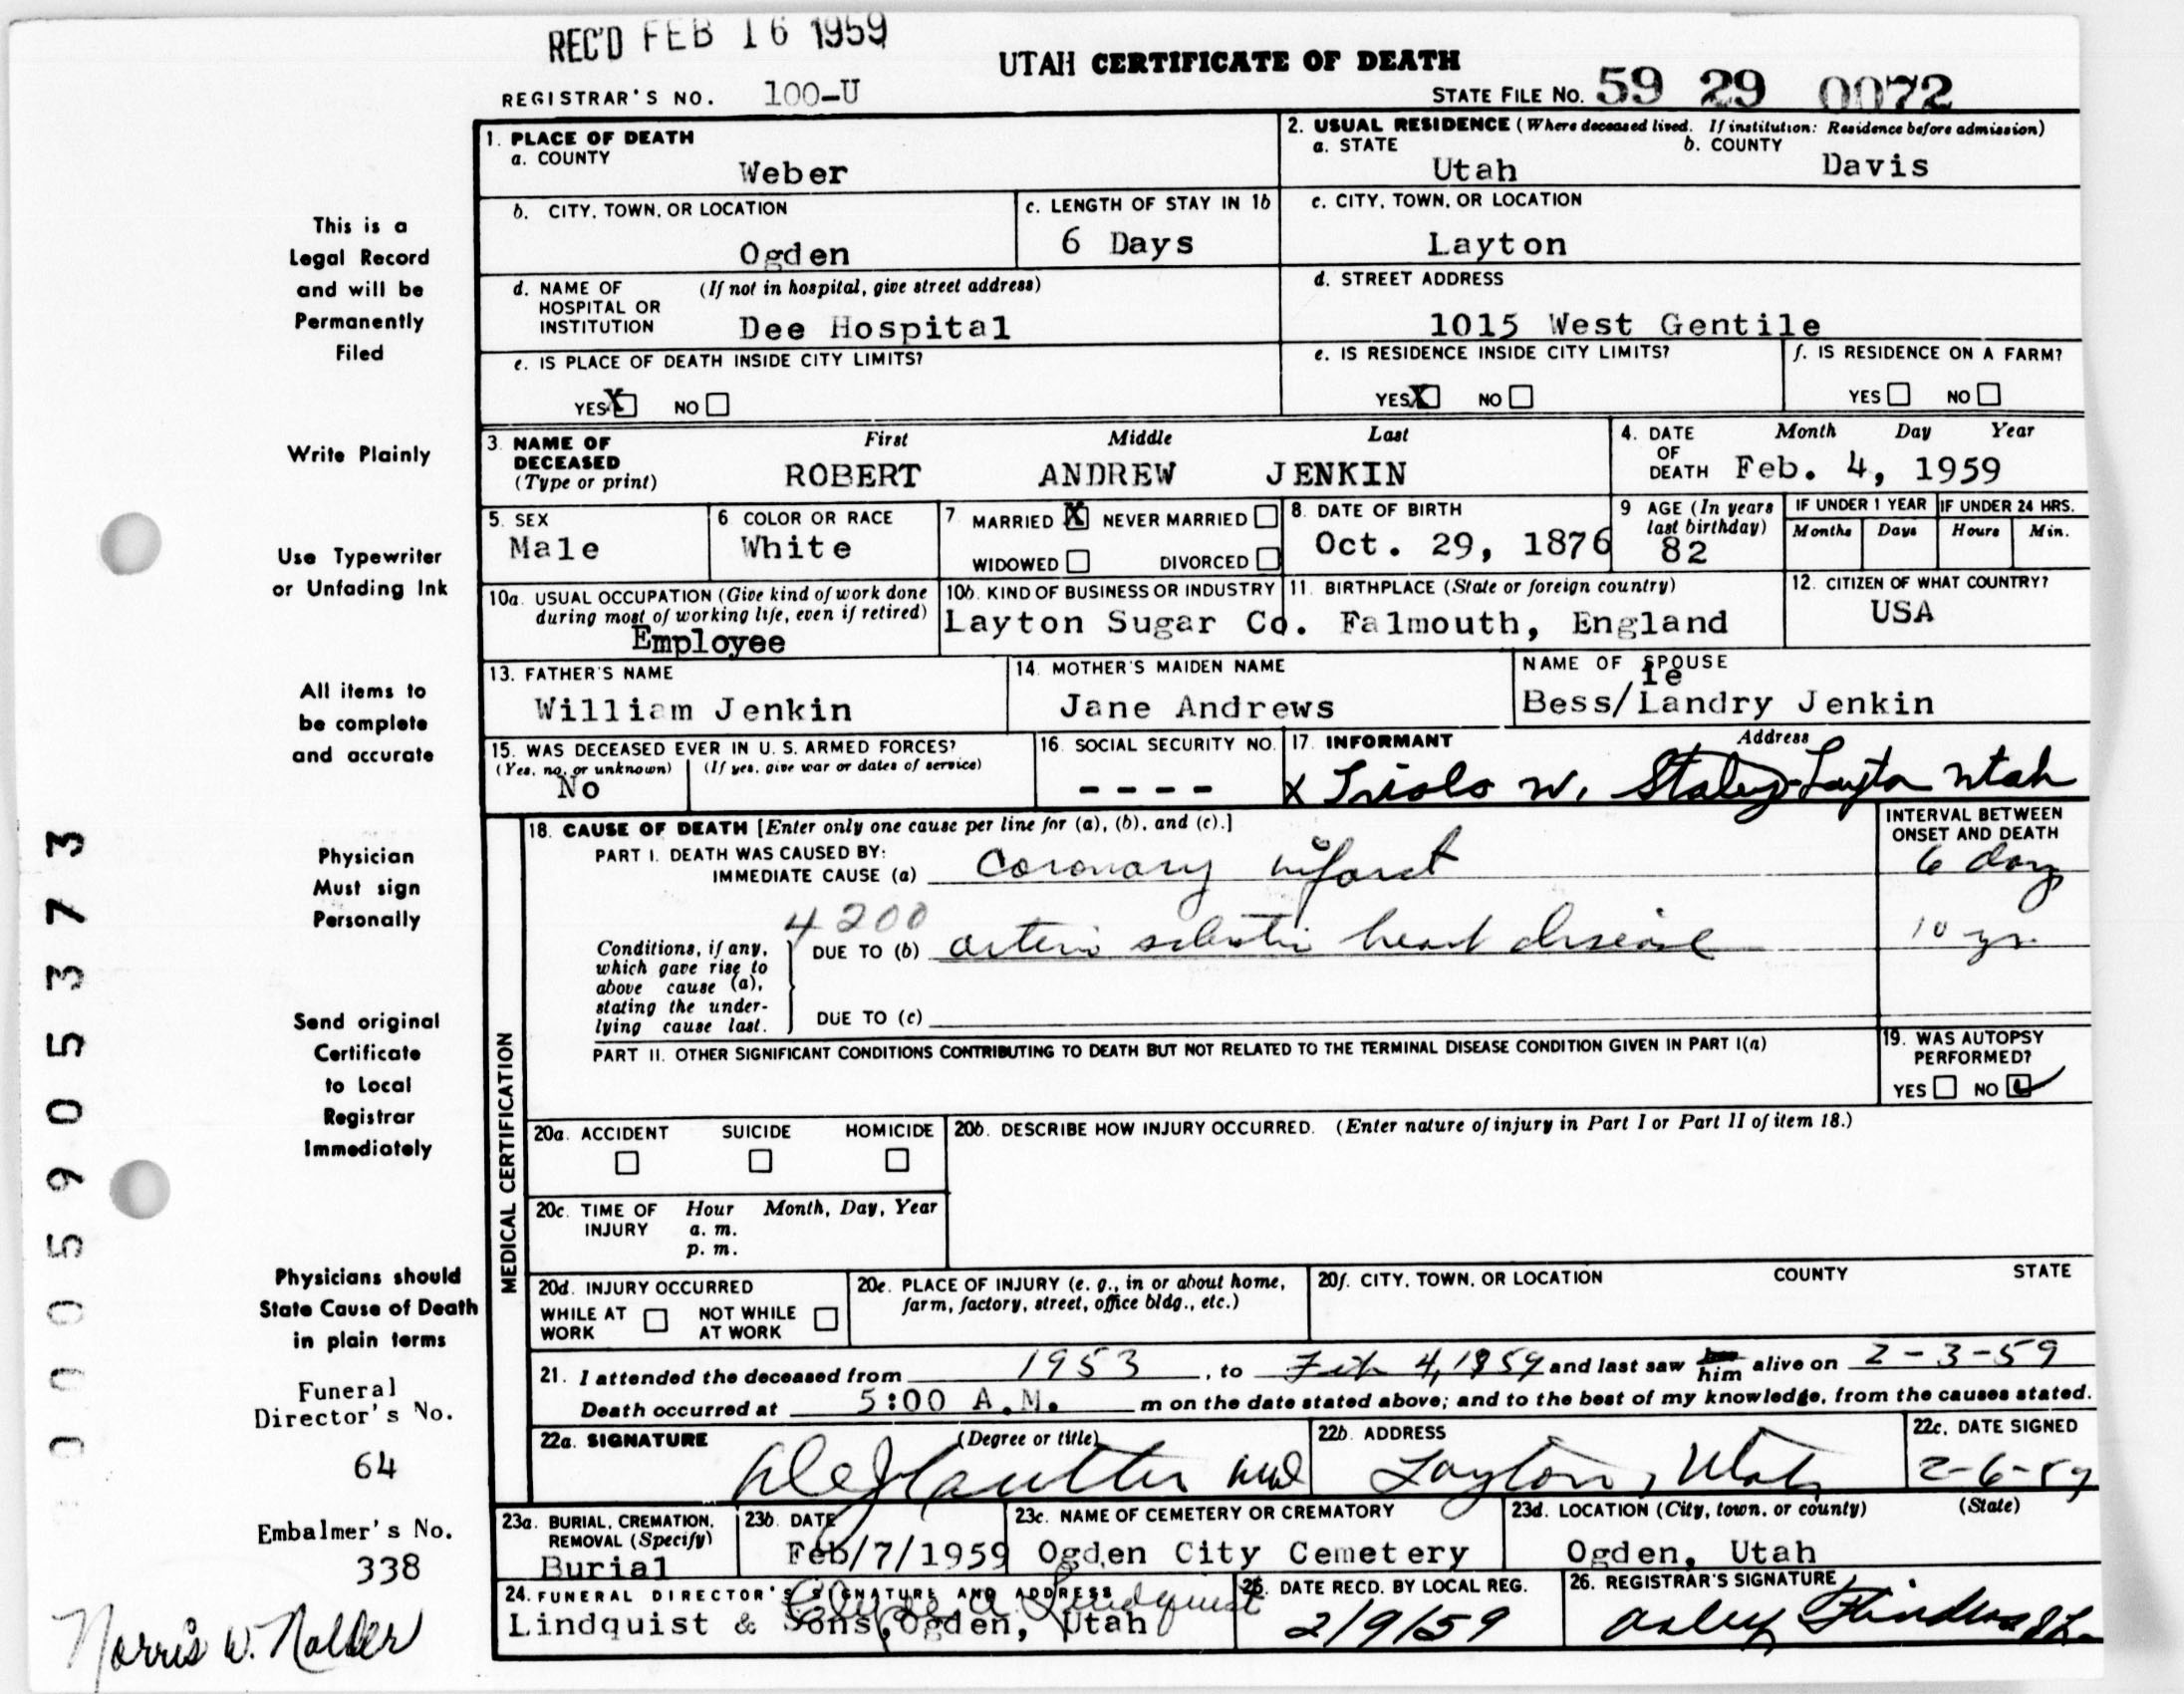 REC'D FEB 16 1959
UTAH CERTIFICATE OF DEATH
REGISTRAR'S NO. 100-U
STATE FILE NO. 59 29 0072
1. PLACE OF DEATH
a. COUNTY
Weber
2. USUAL RESIDENCE (Where deceased lived. If institution: Residence before admission)
a. STATE
Utah
b. COUNTY
Davis
b. CITY, TOWN, OR LOCATION
Ogden
c. LENGTH OF STAY IN 1b
6 Days
c. CITY, TOWN, OR LOCATION
Layton
d. NAME OF HOSPITAL OR INSTITUTION (If not in hospital, give street address)
Dee Hospital
d. STREET ADDRESS
1015 West Gentile
e. IS PLACE OF DEATH INSIDE CITY LIMITS?
YES X NO
e. IS RESIDENCE INSIDE CITY LIMITS?
YES X NO
f. IS RESIDENCE ON A FARM?
YES NO
3. NAME OF DECEASED (Type or print)
First Middle Last
ROBERT ANDREW JENKIN
4. DATE OF DEATH
Month Day Year
Feb. 4, 1959
5. SEX
Male
6 COLOR OR RACE
White
7 MARRIED X NEVER MARRIED
WIDOWED DIVORCED
8. DATE OF BIRTH
Oct. 29, 1876
9 AGE (In years last birthday)
82
IF UNDER 1 YEAR
Months Days
IF UNDER 24 HRS.
Hours Min.
10a. USUAL OCCUPATION (Give kind of work done during most of working life, even if retired)
Employee
10b. KIND OF BUSINESS OR INDUSTRY
Layton Sugar Co.
11. BIRTHPLACE (State or foreign country)
Falmouth, England
12. CITIZEN OF WHAT COUNTRY?
USA
13. FATHER'S NAME
William Jenkin
14. MOTHER'S MAIDEN NAME
Jane Andrews
NAME OF SPOUSE
ie
Bess/Landry Jenkin
15. WAS DECEASED EVER IN U. S. ARMED FORCES?
(Yes, no, or unknown) (If yes, give war or dates of service)
No
16. SOCIAL SECURITY NO.
----
17. INFORMANT Address
X W. Staley Layton Utah
MEDICAL CERTIFICATION
18. CAUSE OF DEATH [Enter only one cause per line for (a), (b), and (c).]
INTERVAL BETWEEN ONSET AND DEATH
PART I. DEATH WAS CAUSED BY:
IMMEDIATE CAUSE (a) Coronary infarct 6 days
4200
Conditions, if any, which gave rise to above cause (a), stating the underlying cause last.
DUE TO (b) arterio sclerotic heart disease 10 yr.
DUE TO (c)
PART II. OTHER SIGNIFICANT CONDITIONS CONTRIBUTING TO DEATH BUT NOT RELATED TO THE TERMINAL DISEASE CONDITION GIVEN IN PART I(a)
19. WAS AUTOPSY PERFORMED?
YES NO
20a. ACCIDENT SUICIDE HOMICIDE
20b. DESCRIBE HOW INJURY OCCURRED. (Enter nature of injury in Part I or Part II of item 18.)
20c. TIME OF INJURY
Hour Month, Day, Year
a. m.
p. m.
20d. INJURY OCCURRED
WHILE AT WORK NOT WHILE AT WORK
20e. PLACE OF INJURY (e. g., in or about home, farm, factory, street, office bldg., etc.)
20f. CITY, TOWN, OR LOCATION COUNTY STATE
21. I attended the deceased from 1953, to Feb 4, 1959 and last saw him alive on 2-3-59
Death occurred at 5:00 A.M. m on the date stated above; and to the best of my knowledge, from the causes stated.
22a. SIGNATURE (Degree or title)
md
22b. ADDRESS
Layton, Utah
22c. DATE SIGNED
2-6-59
23a. BURIAL, CREMATION, REMOVAL (Specify)
Burial
23b. DATE
Feb/7/1959
23c. NAME OF CEMETERY OR CREMATORY
Ogden City Cemetery
23d. LOCATION (City, town, or county) (State)
Ogden, Utah
24. FUNERAL DIRECTOR'S SIGNATURE AND ADDRESS
Lindquist & Sons, Ogden, Utah
25. DATE RECD. BY LOCAL REG.
2/9/59
26. REGISTRAR'S SIGNATURE
This is a
Legal Record
and will be
Permanently
Filed
Write Plainly
Use Typewriter
or Unfading Ink
All items to
be complete
and accurate
Physician
Must sign
Personally
Send original
Certificate
to Local
Registrar
Immediately
Physicians should
State Cause of Death
in plain terms
Funeral
Director's No.
64
Embalmer's No.
338
Norris W. Nalder
0005905373